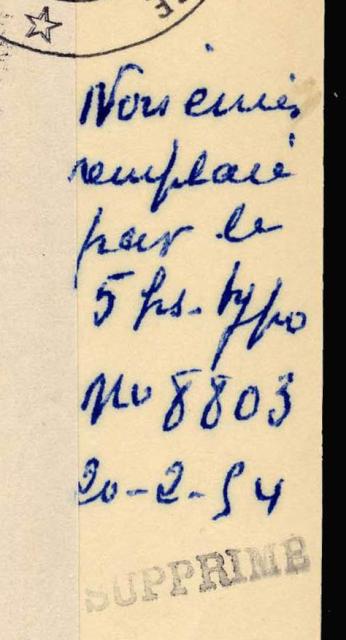 Non émis
remplacé
par le
5 frs. typo
No 8803
20-2-54
SUPPRIMÉ